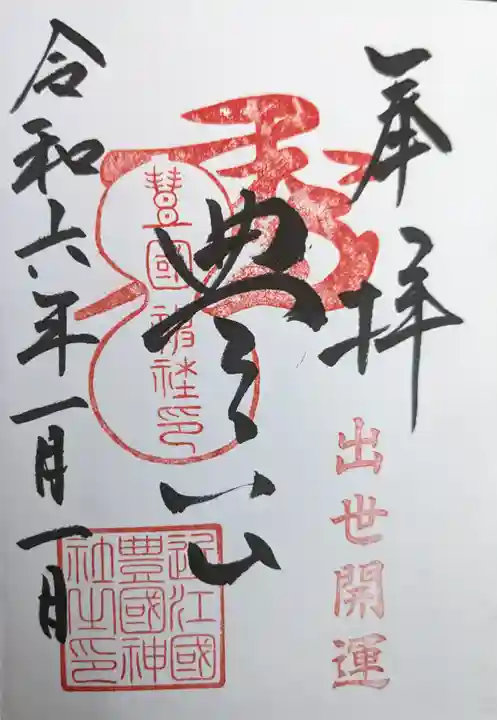 奉拝
出世開運
秀
豊國神社印
近江國
豊國神
社之印
令和六年一月一日